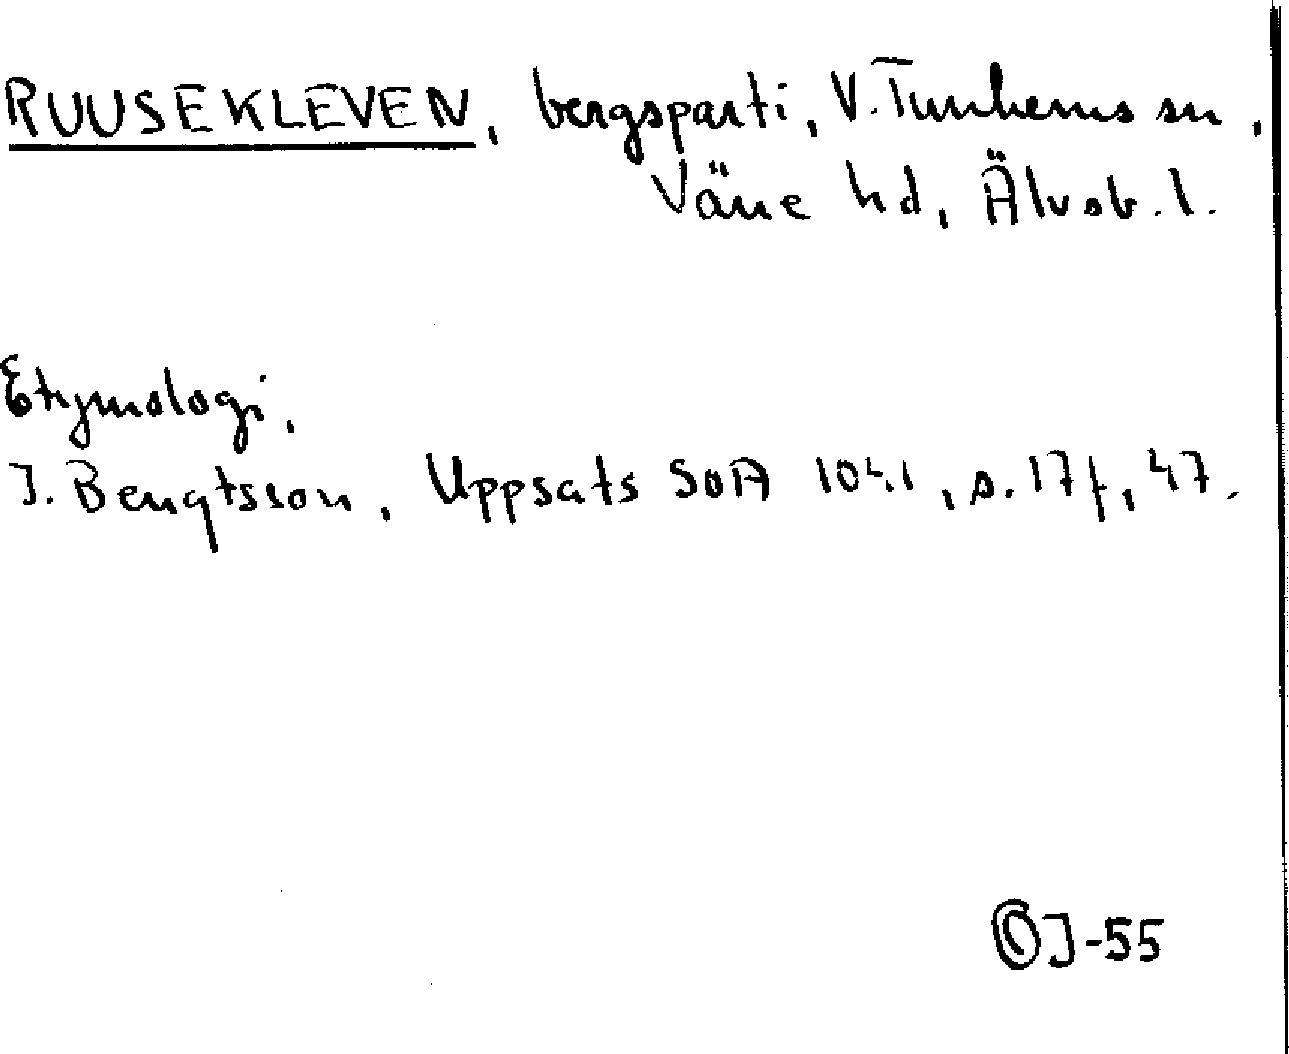 RUUSEKLEVEN, bergsparti, V. Tunhems sn,
Väne hd, Älvsb. l.
Etymologi.
J. Bengtsson, Uppsats SOA 1041, s. 17f, 47.
J-55